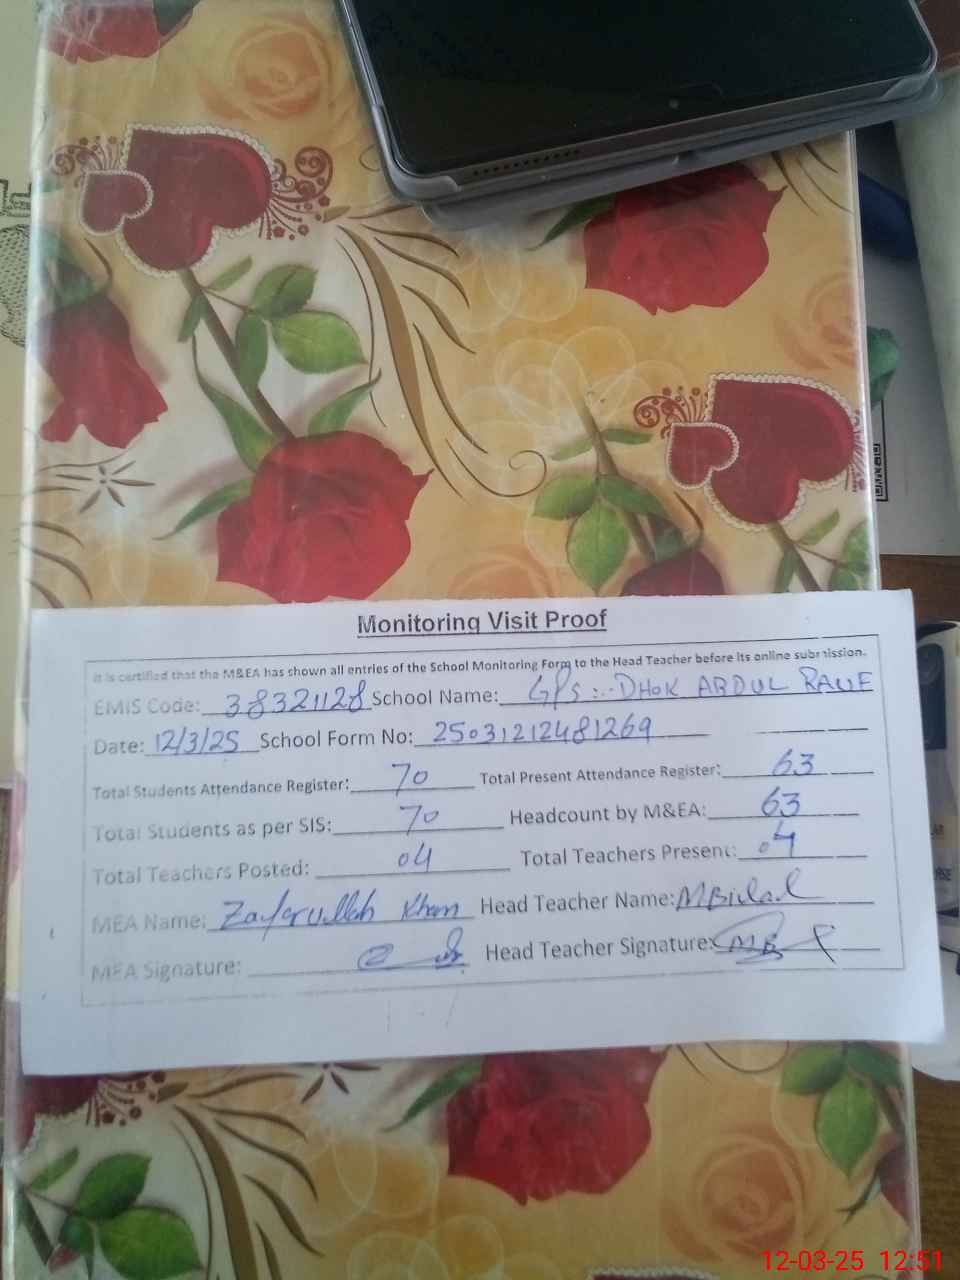 Monitoring Visit Proof
It is certified that the M&EA has shown all entries of the School Monitoring Form to the Head Teacher before its online submission.
EMIS Code: 38321128 School Name: GPS:- DHOK ABDUL RAUF
Date: 12/3/25 School Form No: 25031212481269
Total Students Attendance Register: 70 Total Present Attendance Register: 63
Total Students as per SIS: 70 Headcount by M&EA: 63
Total Teachers Posted: 04 Total Teachers Present: 04
MEA Name: Zafarullah Khan Head Teacher Name: M Bilal
MEA Signature: Head Teacher Signature: MB
12-03-25 12:51